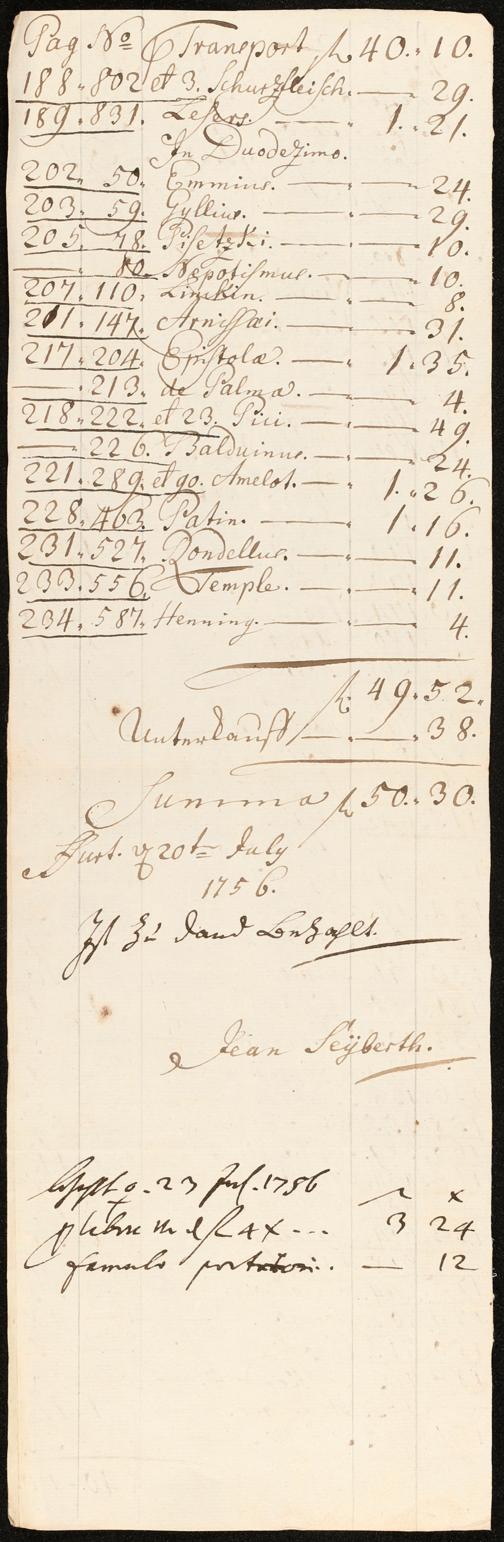 Pag No Transport fl 40. 10.
188. 802 et 3. Schurzfleisch. — 29.
189. 831. Lesers. — 1. 21.
In Duodezimo.
202. 50. Emmius. — 24.
203. 59. Gyllius. — 29.
205. 78. Pisetzki. — 10.
— 80. Nepotismus. — 10.
207. 110. Limkin. — 8.
211. 147. Arnissæi. — 31.
217. 204. Epistolæ. — 1. 35.
— 213. de Palma. — 4.
218. 222. et 23. Pici. — 49.
— 226. Balduinus. — 24.
221. 289. et 90. Amelot. — 1. 26.
228. 463. Patin. — 1. 16.
231. 527. Dondellus. — 11.
233. 556. Temple. — 11.
234. 587. Henning. — 4.
fl. 49. 52.
Unterkauff — 38.
Summa fl 50. 30.
Ffurt. 20t July
1756.
Ist zu danck bezahlt.
Jean Seÿberth.
23 Jul. 1756
x
4 x --- 3 24
famulo — 12